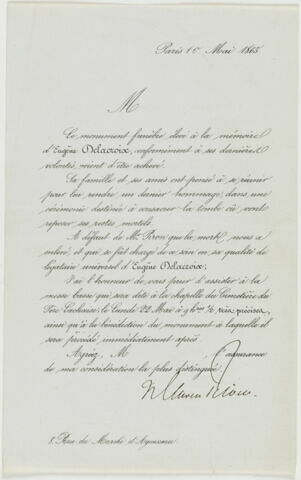 Paris 1er Mai 1865
M
Le monument funèbre élevé à la mémoire
d'Eugène Delacroix, conformément à ses dernières
volontés, vient d'être achevé.
Sa famille et ses amis ont pensé à se réunir
pour lui rendre un dernier hommage, dans une
cérémonie destinée à consacrer la tombe où vont
reposer ses restes mortels.
A défaut de Mr. Piron que la mort nous a
enlevé et qui se fût chargé de ce soin en sa qualité de
légataire universel d'Eugène Delacroix;
J'ai l'honneur de vous prier d'assister à la
messe basse qui sera dite à la chapelle du Cimetière du
Père Lachaise le Lundi 22 Mai à 9 h 1/2 très précises,
ainsi qu'à la bénédiction du monument à laquelle il
sera procédé immédiatement après.
Agréez, M l'assurance
de ma considération la plus distinguée.
8, Rue du Marché d'Aguesseau